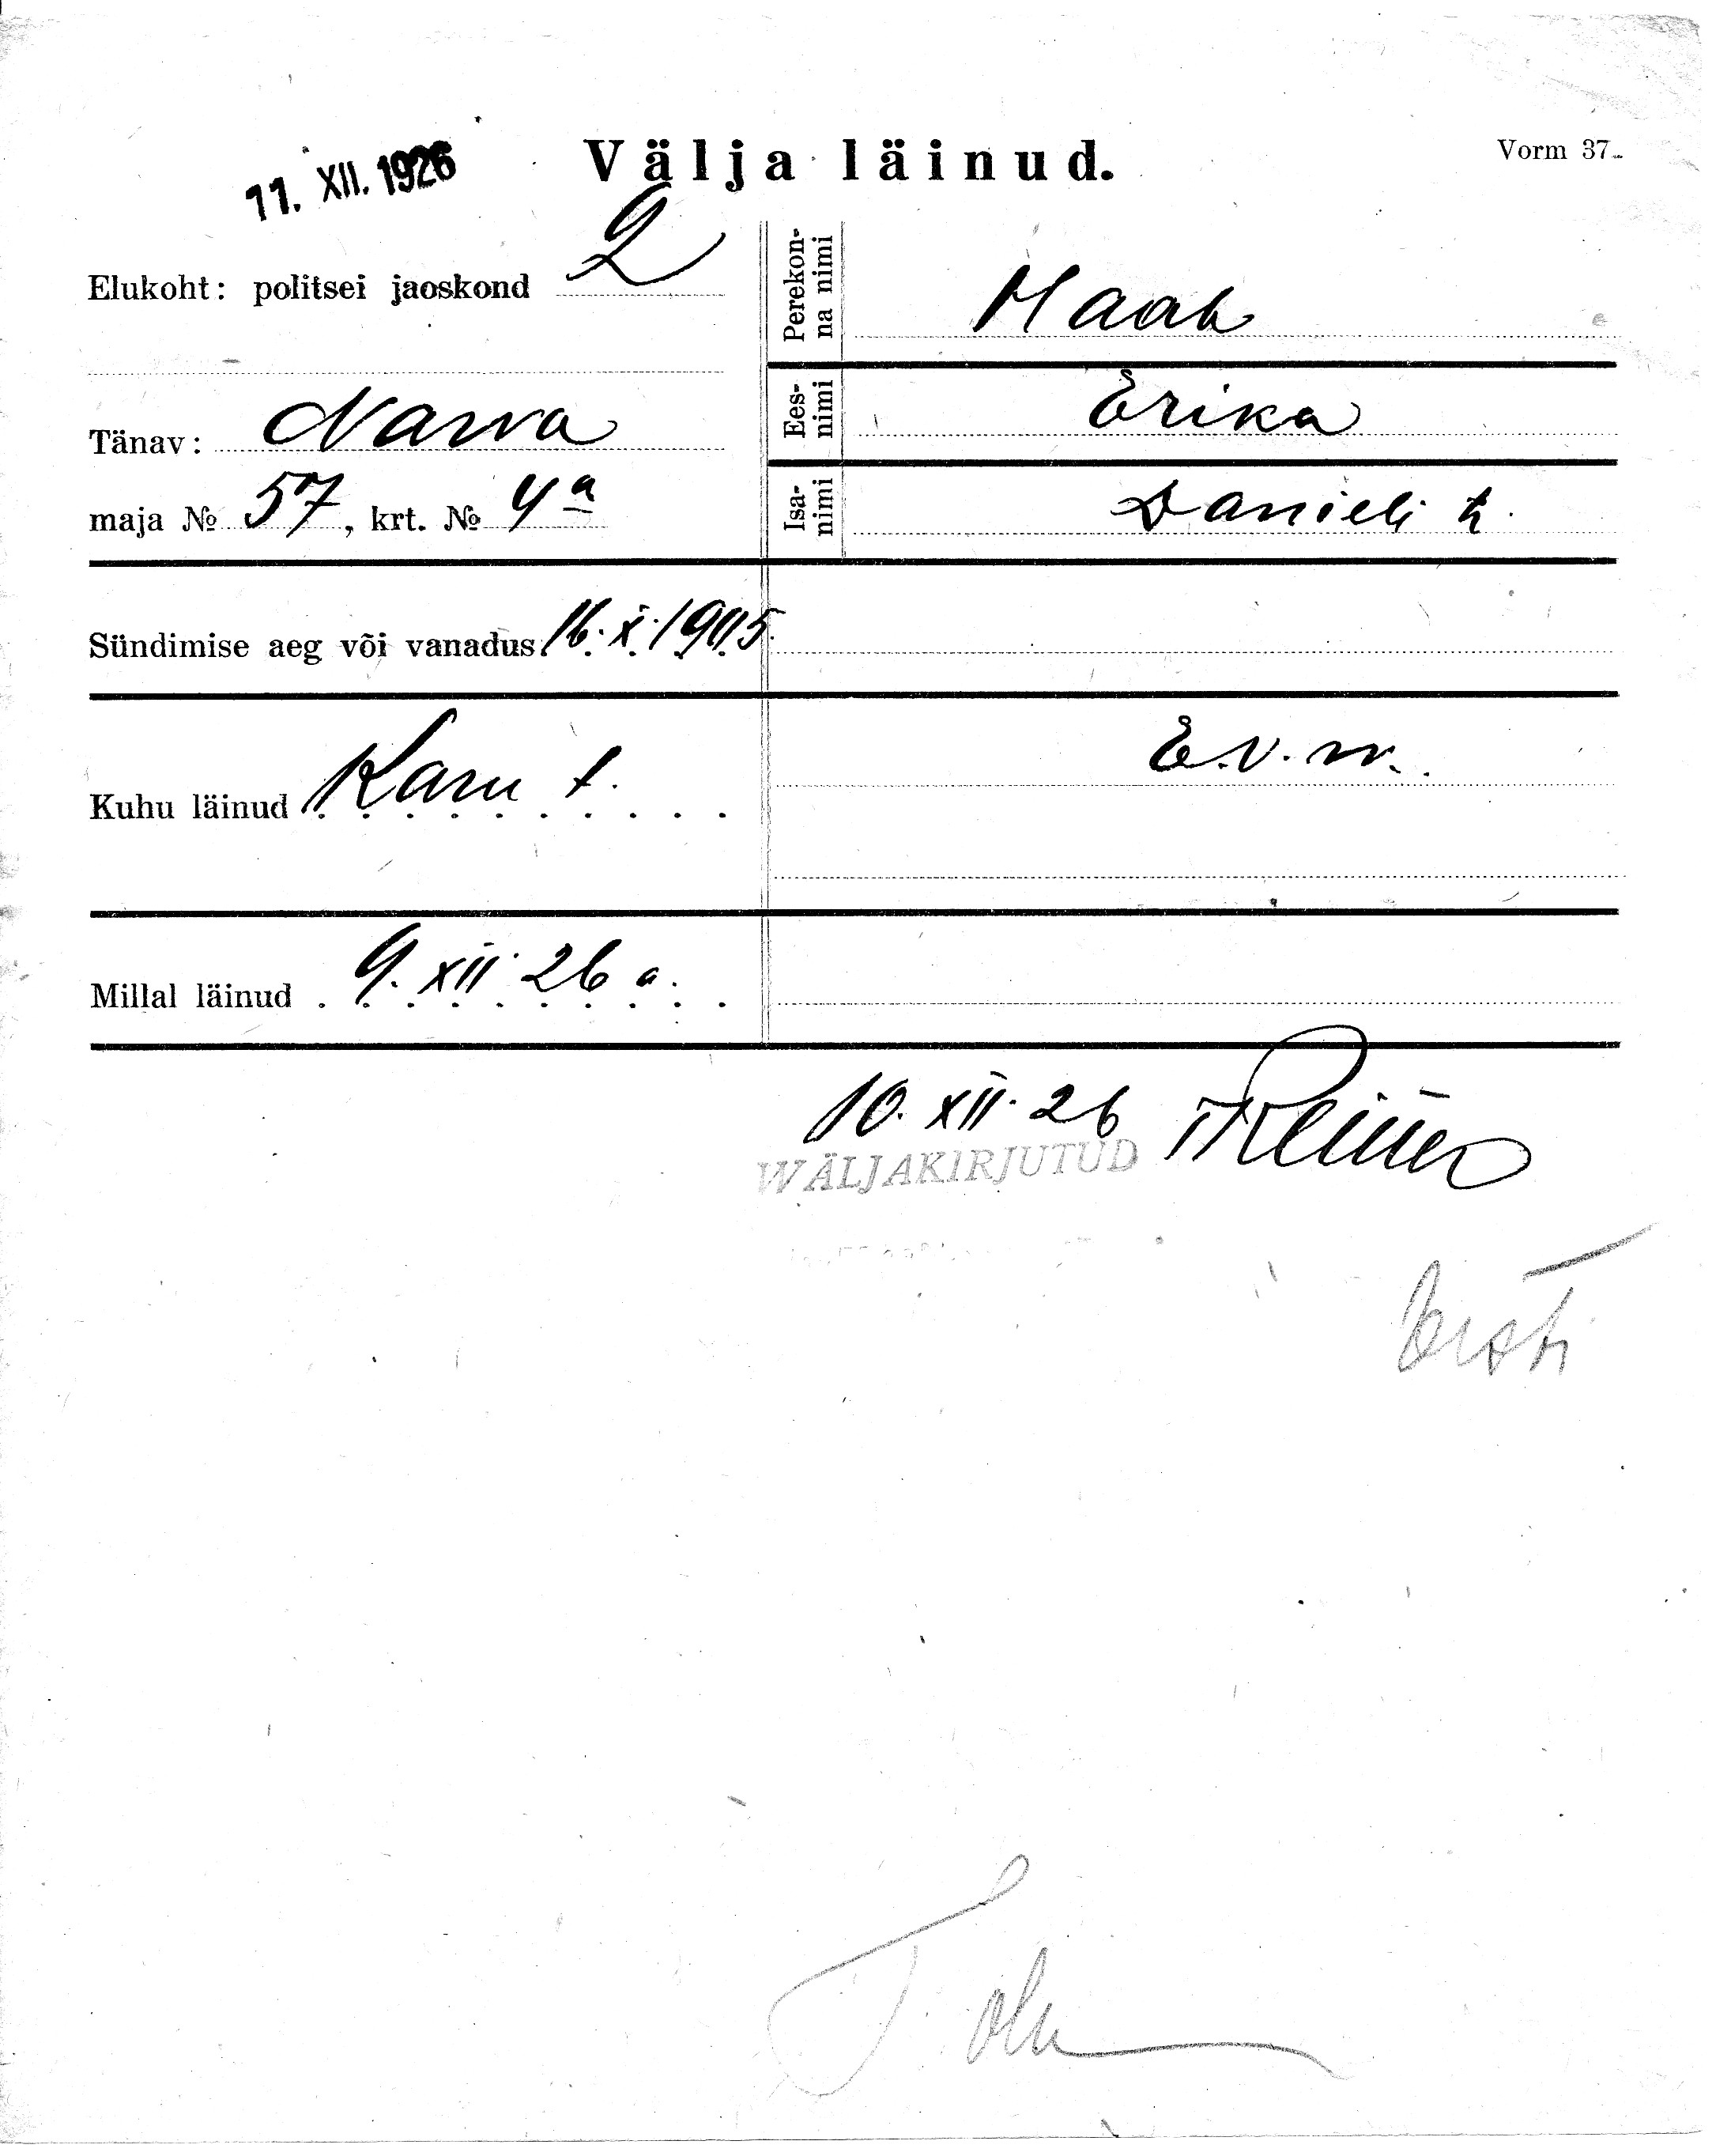 11. XII. 1926
Välja läinud.
Vorm 37.
Elukoht: politsei jaoskond 2
Tänav: Narva
maja № 57, krt. № 4a
Perekon-
na nimi
Ees-
nimi Erika
Isa-
nimi Danieli t.
Sündimise aeg või vanadus 16. X. 1905.
Kuhu läinud Karu t.
E.V.
Millal läinud 9. XII 26 a.
10. XII. 26
WÄLJAKIRJUTUD